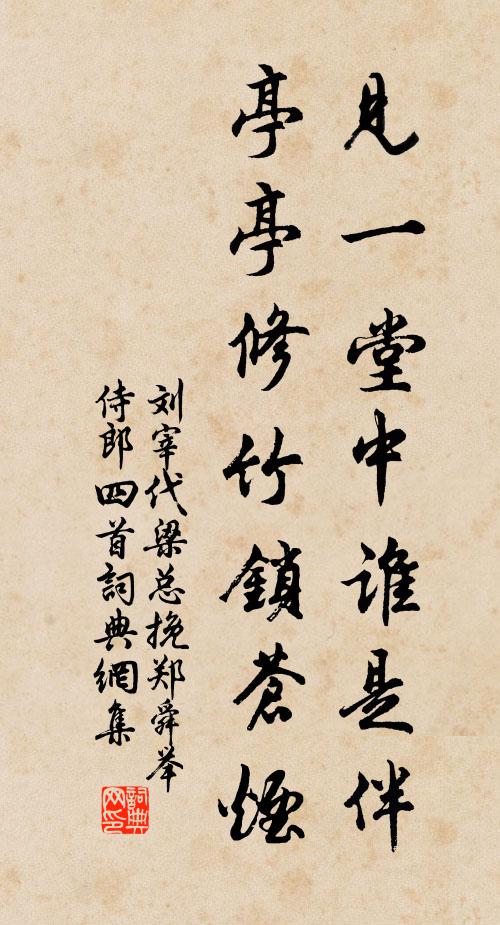 見一堂中誰是伴
亭亭修竹鎖蒼煙
刘宰代梁总挽郑舜举
侍郎四首詞典網集
詞典
网印